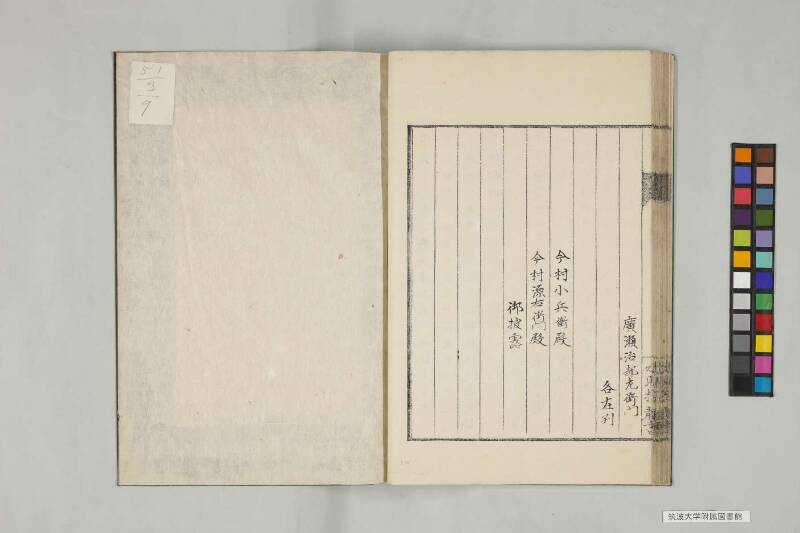 廣瀬治部左衛門
各在判
今村小兵衛殿
今村源右衛門殿
御披露
51
9
9
筑波大学附属図書館